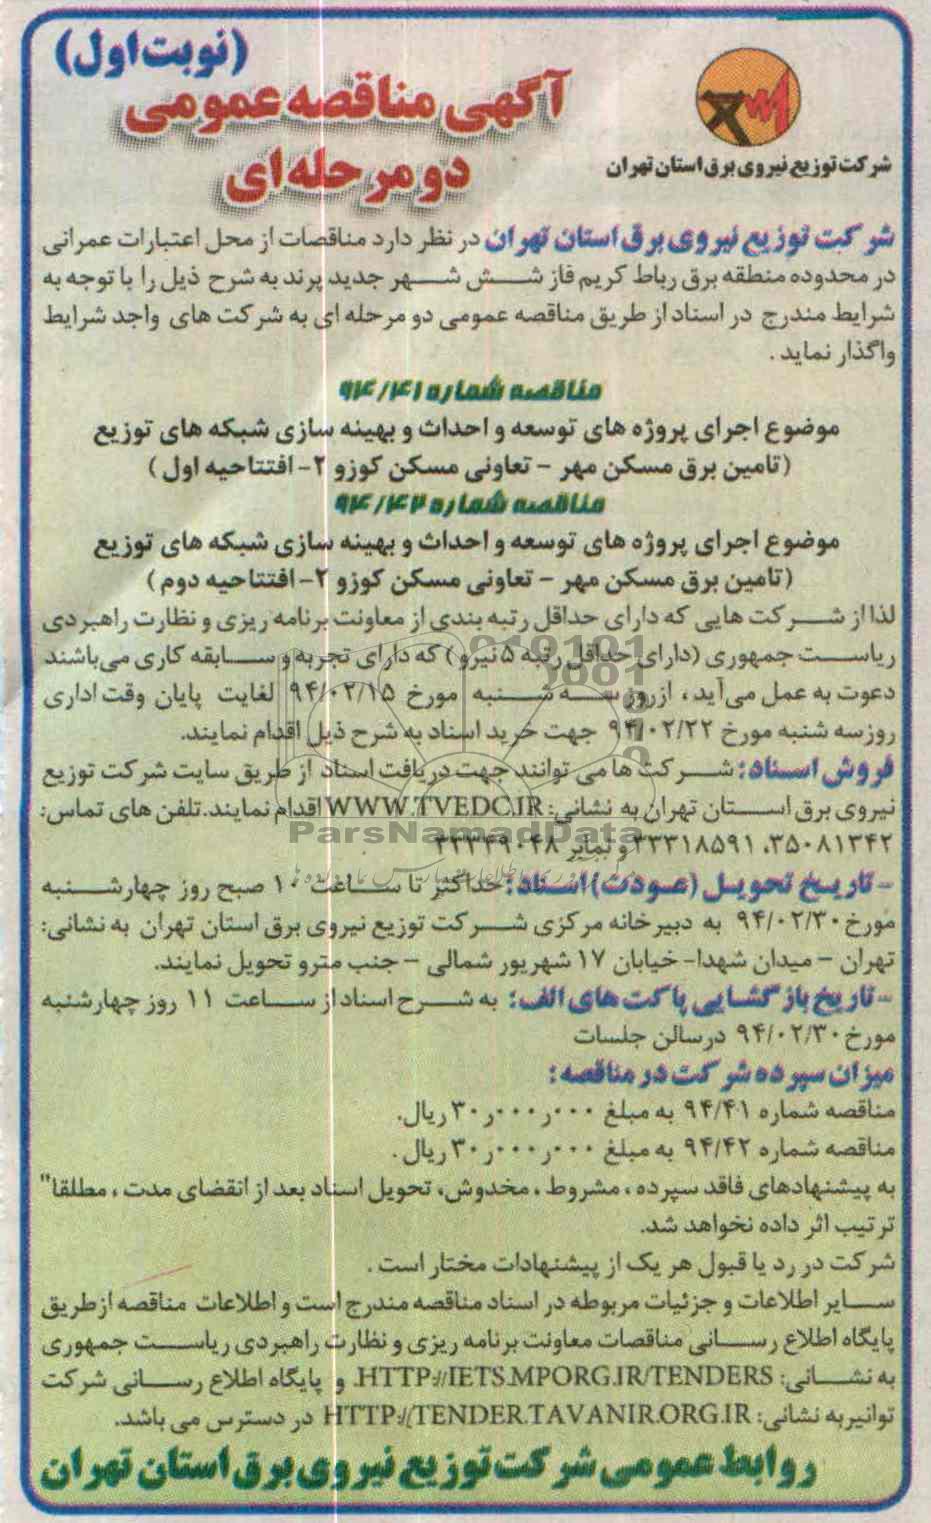 (نوبت اول)
آگهی مناقصه عمومی
دو مرحله ای
شرکت توزیع نیروی برق استان تهران
شرکت توزیع نیروی برق استان تهران در نظر دارد مناقصات از محل اعتبارات عمرانی
در محدوده منطقه برق رباط کریم فاز شش شهر جدید پرند به شرح ذیل را با توجه به
شرایط مندرج در اسناد از طریق مناقصه عمومی دو مرحله ای به شرکت های واجد شرایط
واگذار نماید.
مناقصه شماره ۹۴/۴۱
موضوع اجرای پروژه های توسعه و احداث و بهینه سازی شبکه های توزیع
(تامین برق مسکن مهر - تعاونی مسکن کوزو ۲- افتتاحیه اول)
مناقصه شماره ۹۴/۴۲
موضوع اجرای پروژه های توسعه و احداث و بهینه سازی شبکه های توزیع
(تامین برق مسکن مهر - تعاونی مسکن کوزو ۲- افتتاحیه دوم)
لذا از شرکت هایی که دارای حداقل رتبه بندی از معاونت برنامه ریزی و نظارت راهبردی
ریاست جمهوری (دارای حداقل رتبه ۵ نیرو) که دارای تجربه و سابقه کاری می‌باشند
دعوت به عمل می‌آید، ازروز سه شنبه مورخ ۹۴/۰۲/۱۵ لغایت پایان وقت اداری
روزسه شنبه مورخ ۹۴/۰۲/۲۲ جهت خرید اسناد به شرح ذیل اقدام نمایند.
فروش اسناد: شرکت ها می توانند جهت دریافت اسناد از طریق سایت شرکت توزیع
نیروی برق استان تهران به نشانی: WWW.TVEDC.IR اقدام نمایند.تلفن های تماس:
۳۵۰۸۱۳۴۲، ۳۳۳۱۸۵۹۱ و نمابر ۳۳۳۴۹۰۴۸
ParsNamadData
- تاریخ تحویل (عودت) اسناد: حداکثر تا ساعت ۱۰ صبح روز چهارشنبه
مورخ ۹۴/۰۲/۳۰ به دبیرخانه مرکزی شرکت توزیع نیروی برق استان تهران به نشانی:
تهران - میدان شهدا- خیابان ۱۷ شهریور شمالی - جنب مترو تحویل نمایند.
- تاریخ بازگشایی پاکت های الف: به شرح اسناد از ساعت ۱۱ روز چهارشنبه
مورخ ۹۴/۰۲/۳۰ درسالن جلسات
میزان سپرده شرکت در مناقصه:
مناقصه شماره ۹۴/۴۱ به مبلغ ۳۰ر۰۰۰ر۰۰۰ ریال.
مناقصه شماره ۹۴/۴۲ به مبلغ ۳۰ر۰۰۰ر۰۰۰ ریال.
به پیشنهادهای فاقد سپرده، مشروط، مخدوش، تحویل اسناد بعد از انقضای مدت، مطلقا"
ترتیب اثر داده نخواهد شد.
شرکت در رد یا قبول هر یک از پیشنهادات مختار است.
سایر اطلاعات و جزئیات مربوطه در اسناد مناقصه مندرج است و اطلاعات مناقصه ازطریق
پایگاه اطلاع رسانی مناقصات معاونت برنامه ریزی و نظارت راهبردی ریاست جمهوری
به نشانی: HTTP://IETS.MPORG.IR/TENDERS. و پایگاه اطلاع رسانی شرکت
توانیربه نشانی: HTTP:/(TENDER.TAVANIR.ORG.IR در دسترس می باشد.
روابط عمومی شرکت توزیع نیروی برق استان تهران